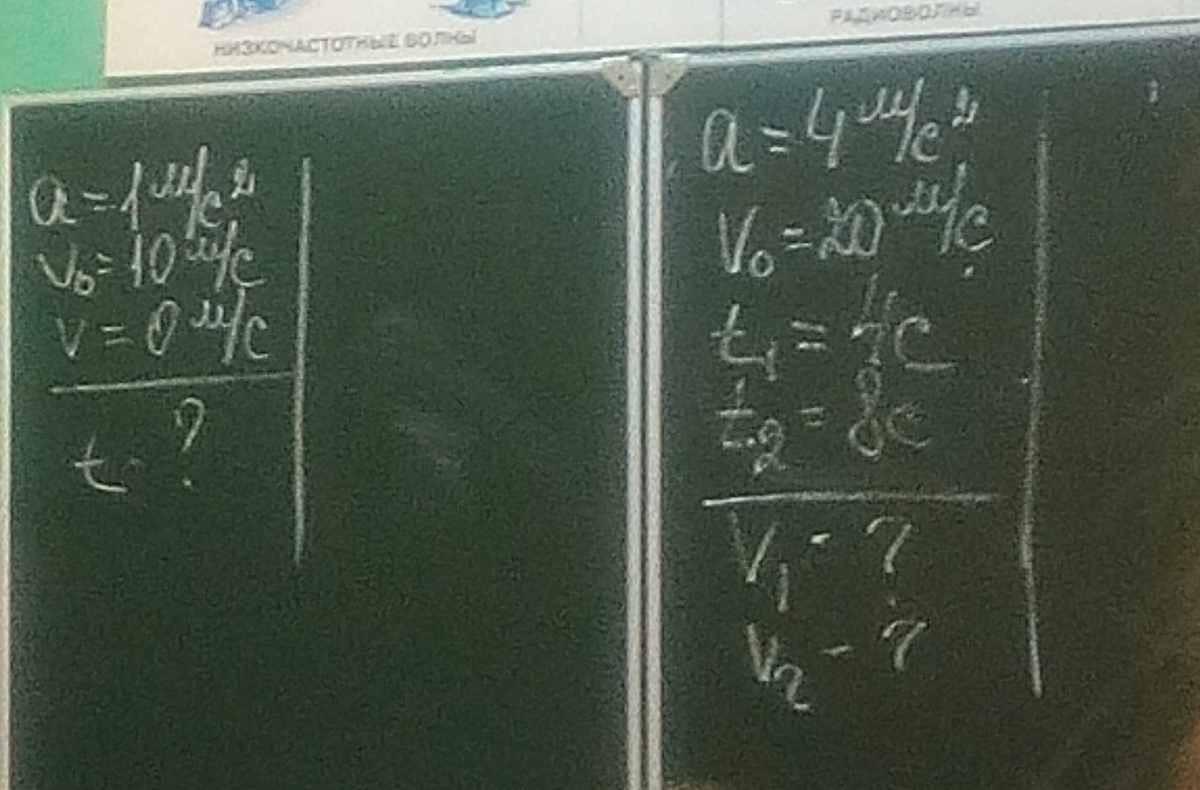 НИЗКОЧАСТОТНЫЕ ВОЛНЫ
РАДИОВОЛНЫ
a = 1 м/с²
v₀ = 10 м/с
v = 0 м/с
t - ?
a = 4 м/с²
V₀ = 20 м/с
t₁ = 4с
t₂ = 8с
V₁ - ?
V₂ - ?